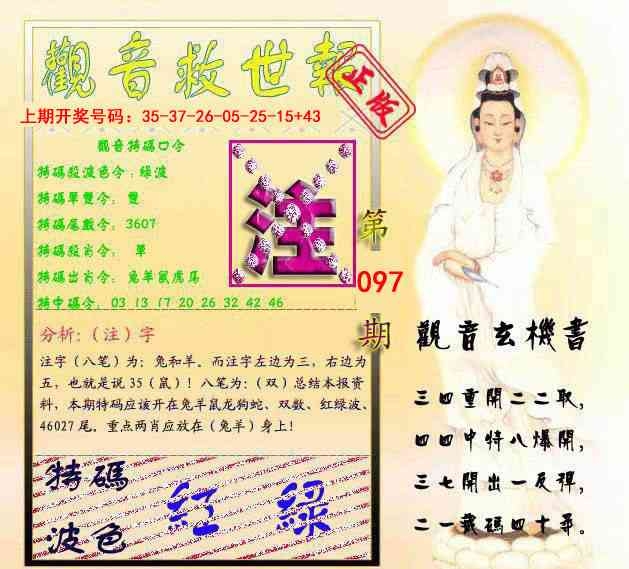 觀音救世報
正版
上期开奖号码：35-37-26-05-25-15+43
觀音特碼口令
特碼殺波色令：綠波
特碼單雙令： 雙
特碼尾數令： 3607
特碼殺肖令： 單
特碼出肖令： 兔羊鼠虎馬
特中碼令： 03 13 17 20 26 32 42 46
注
第
097
期
分析：（注）字
注字（八笔）为；兔和羊。而注字左边为三，右边为
五，也就是说 35（鼠）！八笔为：（双）总结本报资
料，本期特码应该开在兔羊鼠龙狗蛇、双数、红绿波、
46027 尾。重点两肖应放在（兔羊）身上！
特碼
波色
紅 綠
觀音玄機書
三四重開二二取，
四四中特八爆開，
三七開出一反彈，
二一載碼四十尋。